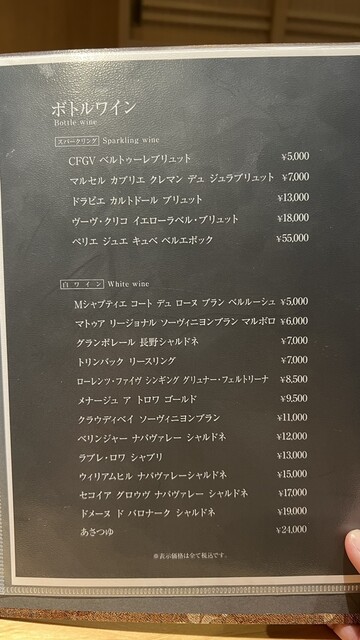 ボトルワイン
Bottle wine
スパークリング Sparkling wine
CFGV ベルトゥーレブリュット ¥5,000
マルセル カブリエ クレマン デュ ジュラブリュット ¥7,000
ドラピエ カルトドール ブリュット ¥13,000
ヴーヴ・クリコ イエローラベル・ブリュット ¥18,000
ペリエ ジュエ キュベ ベルエポック ¥55,000
白ワイン White wine
Mシャプティエ コート デュ ローヌ ブラン ベルルーシュ ¥5,000
マトゥア リージョナル ソーヴィニヨンブラン マルボロ ¥6,000
グランポレール 長野シャルドネ ¥7,000
トリンバック リースリング ¥7,000
ローレンツ・ファイヴ シンギング グリュナー・フェルトリーナ ¥8,500
メナージュ ア トロワ ゴールド ¥9,500
クラウディベイ ソーヴィニヨンブラン ¥11,000
ベリンジャー ナパヴァレー シャルドネ ¥12,000
ラブレ・ロワ シャブリ ¥13,000
ウィリアムヒル ナパヴァレーシャルドネ ¥15,000
セコイア グロウヴ ナパヴァレー シャルドネ ¥17,000
ドメーヌ ド バロナーク シャルドネ ¥19,000
あさつゆ ¥24,000
※表示価格は全て税込です。